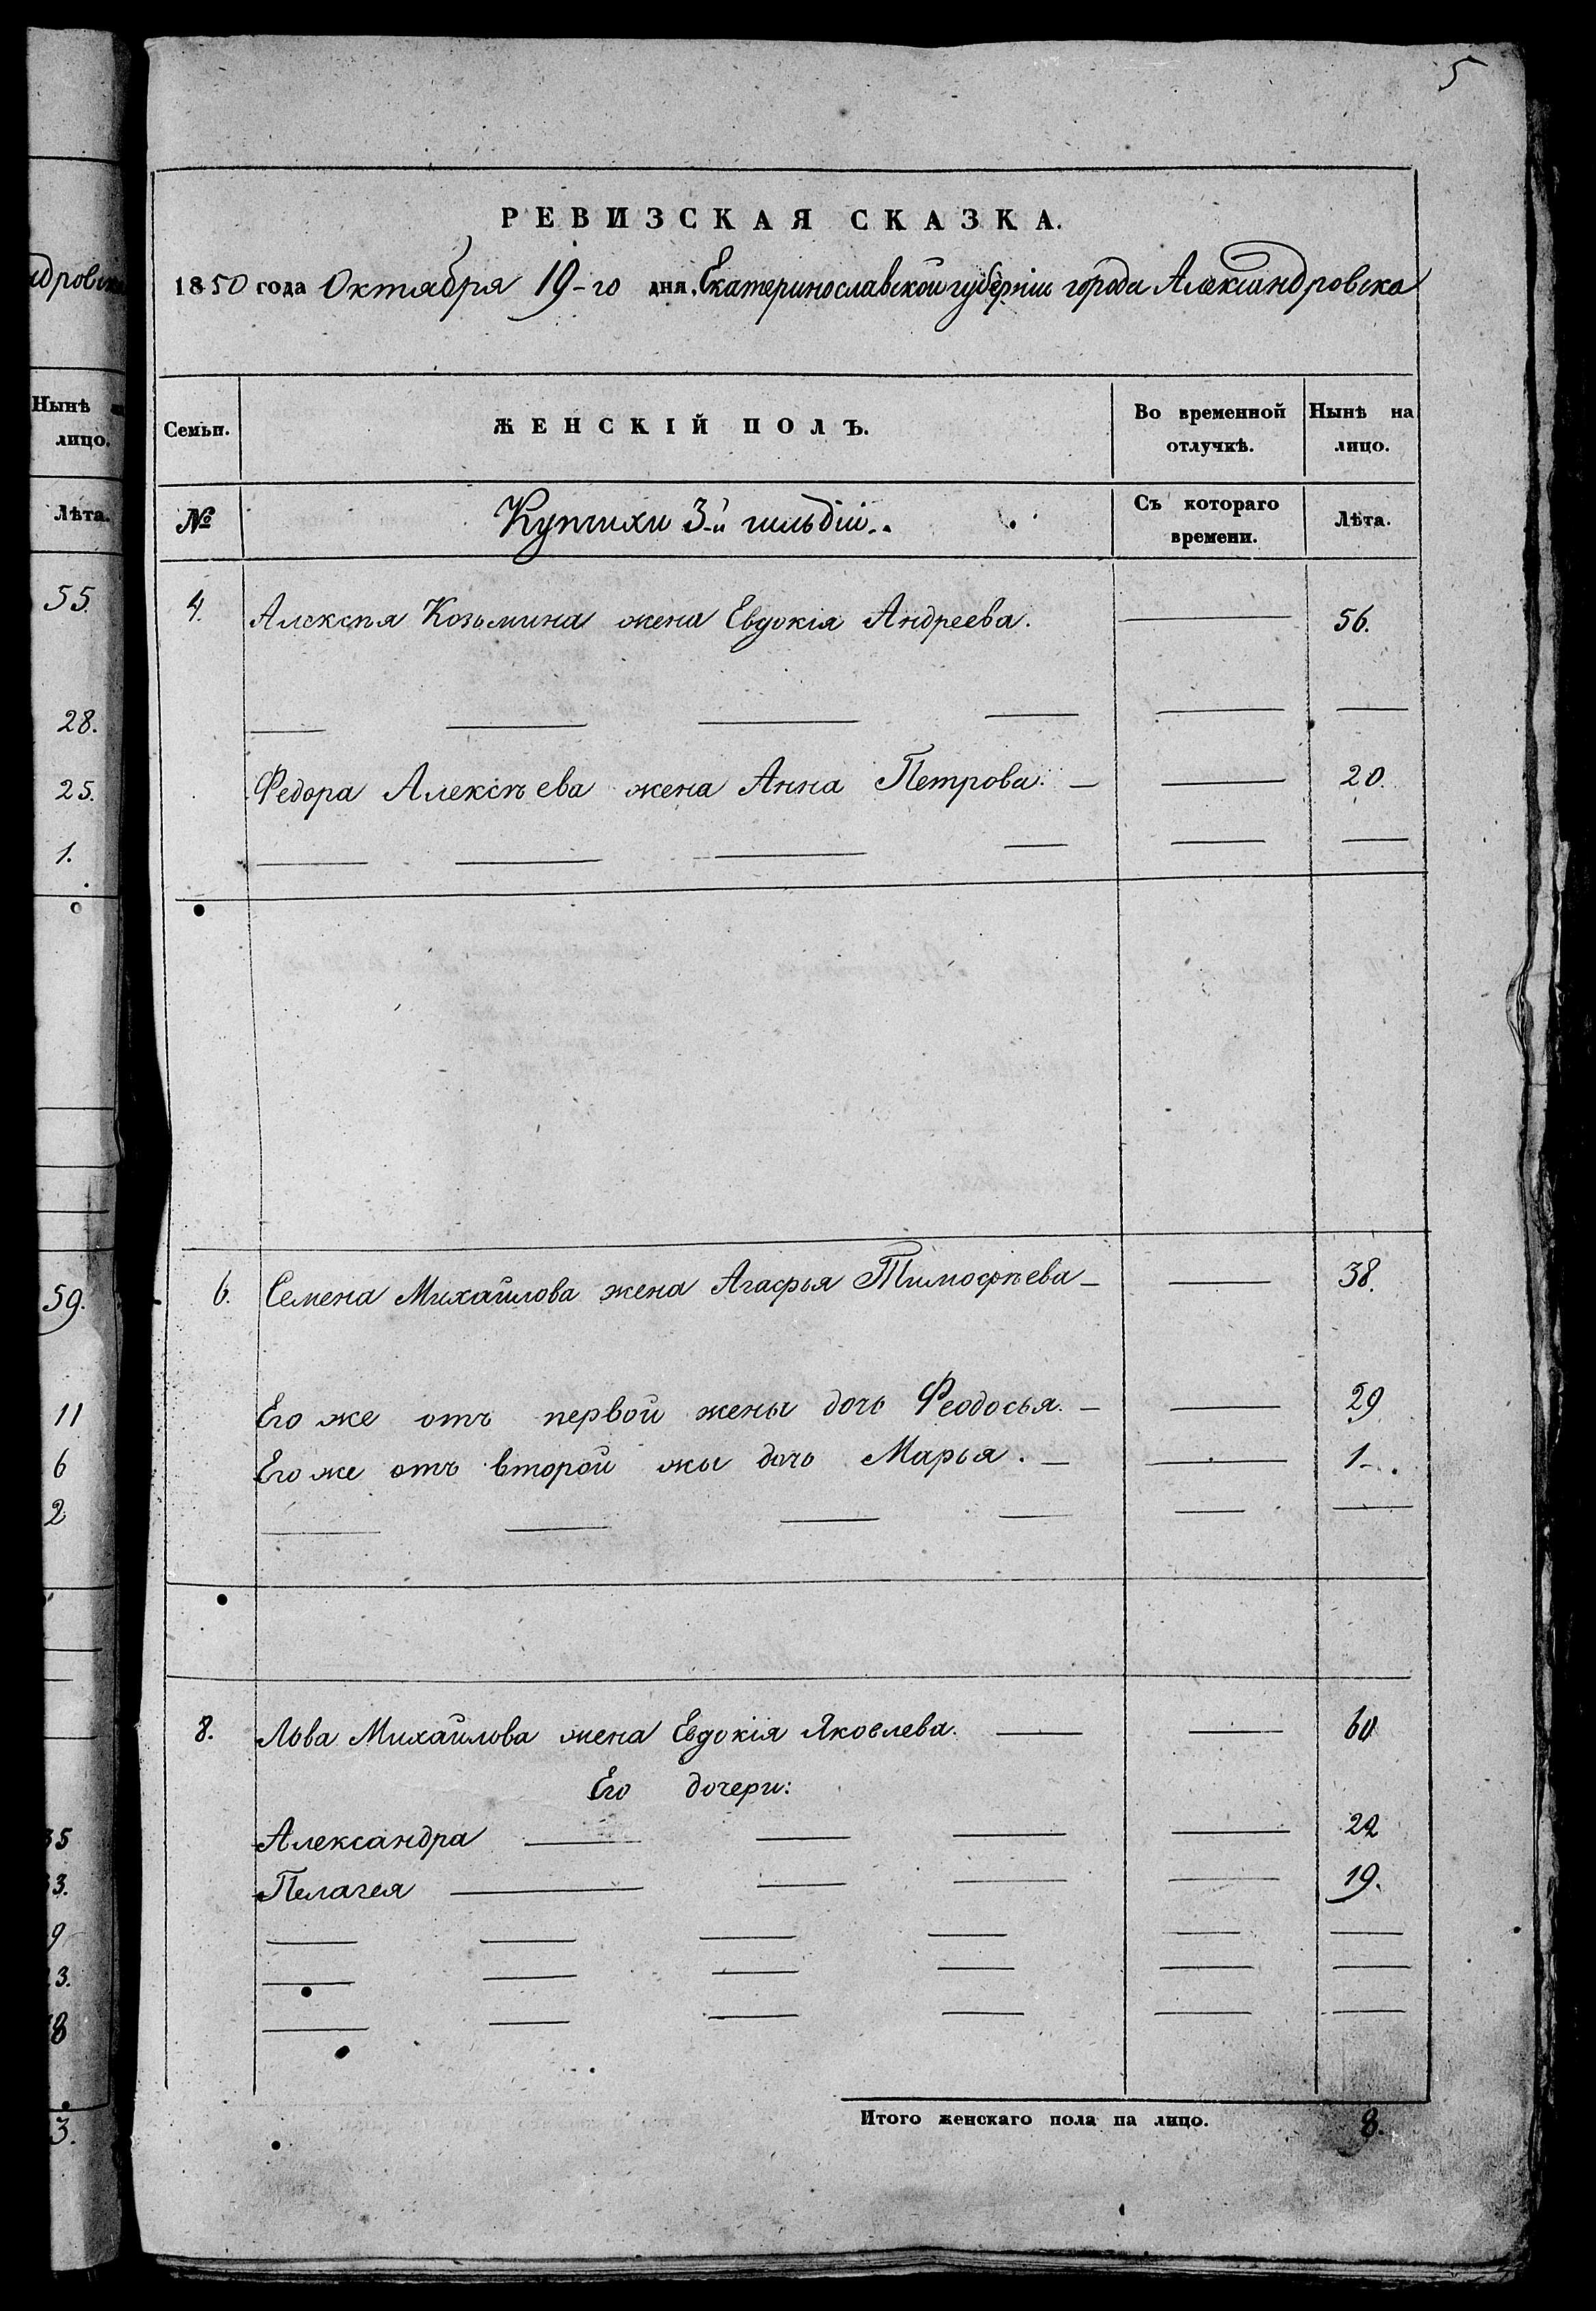 ндровска
Нынѣ
лицо.
Лѣта.
55.
28.
25.
1.
59.
11
6
2
35
9
3.
5
РЕВИЗСКАЯ СКАЗКА.
1850 года Октября 19-го дня. Екатеринославской губерніи города Александровска
Семьи. ЖЕНСКІЙ ПОЛЪ. Во временной отлучкѣ. Нынѣ на лицо.
№ Купчихи 3-й гильдіи. Съ котораго времени. Лѣта.
4. Алексѣя Козьмина жена Евдокія Андреева. — 56.
— — — — — —
Федора Алексѣева жена Анна Петрова. — — 20.
— — — — — —
6. Семена Михайлова жена Агафья Тимофѣева — — 38.
Его же отъ первой жены дочь Феодосья. — — 29
Его же отъ второй жы дочь Марья. — — 1.
— — — — — —
8. Льва Михайлова жена Евдокія Яковлева. — — 60
Его дочери:
Александра — — — — 22
Пелагея — — — — 19.
— — — — — —
— — — — — —
— — — — — —
Итого женскаго пола на лицо. 8.